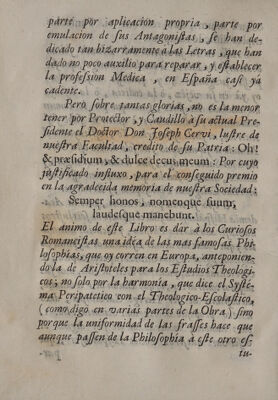 parte por aplicacion propria, parte por
emulacion de sus Antagonistas, se han de-
dicado tan bizarramente a las Letras, que han
dado no poco auxilio para reparar, y establecer
la profesion Medica, en España casi yà
cadente.
Pero sobre tantas glorias, no es la menor
tener por Protector, y Caudillo à su actual Pre-
sidente el Doctor Don Joseph Cervi, lustre de
nuestra Facultad, credito de su Patria: Oh!
& præsidium, & dulce decus meum: Por cuyo
justificado influxo, para el conseguido premio
en la agradecida memoria de nuestra Sociedad:
Semper honos, nomenque suum,
laudesque manebunt.
El animo de este Libro es dar à los Curiosos
Romancistas una idea de las mas famosas Phi-
losophias, que oy corren en Europa, anteponien-
do la de Aristoteles para los Estudios Theologi-
cos; no solo por la harmonia, que dice el Systè-
ma Peripatetico con el Theologico-Escolastico,
(como digo en varias partes de la Obra) sino
porque la uniformidad de las frasses hace que
aunque passen de la Philosophia à este otro es-
tu-